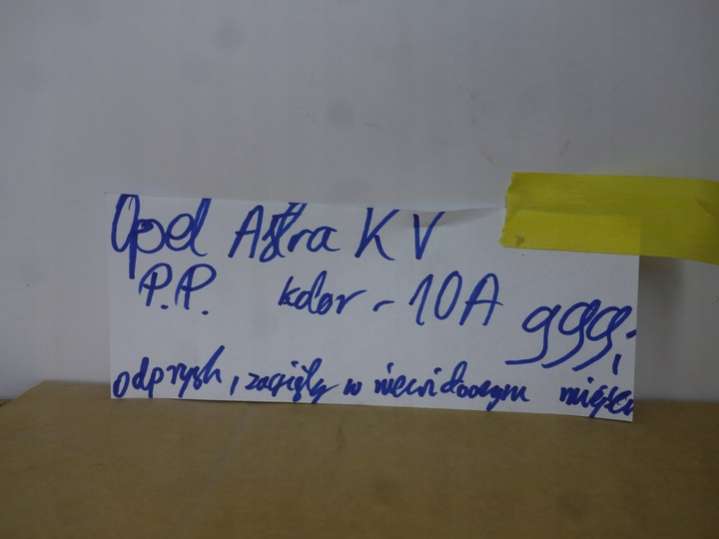 Opel Astra K V
P.P. kolor - 10A 999,-
odprysk, zagięty w niewidocznym miejscu